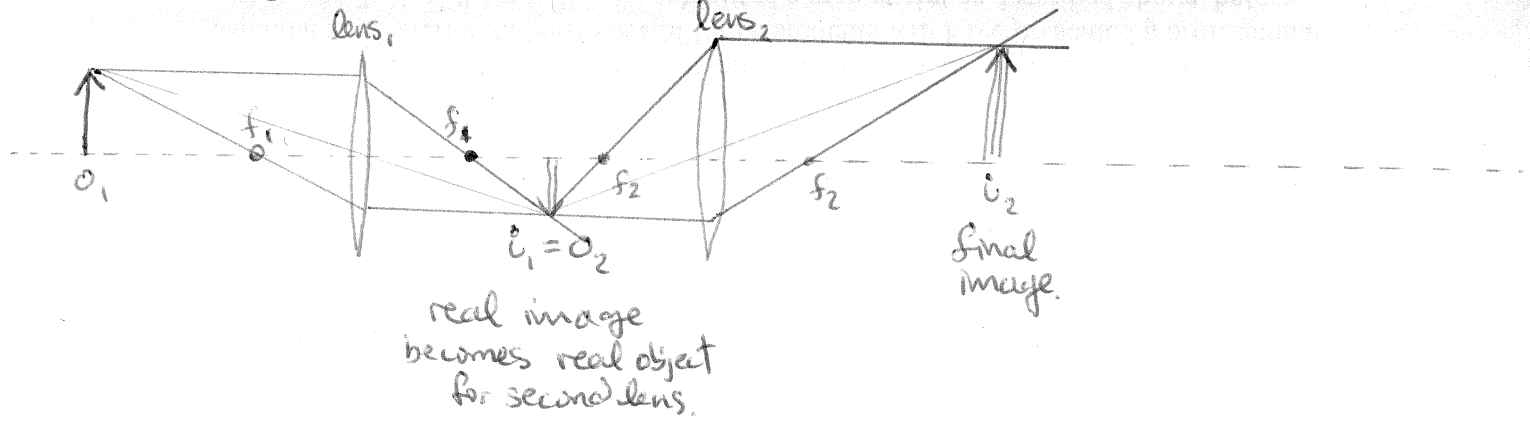 lens₁
lens₂
f₁
f₁
f₂
f₂
o₁
i₁ = o₂
i₂
final
image.
real image
becomes real object
for second lens.